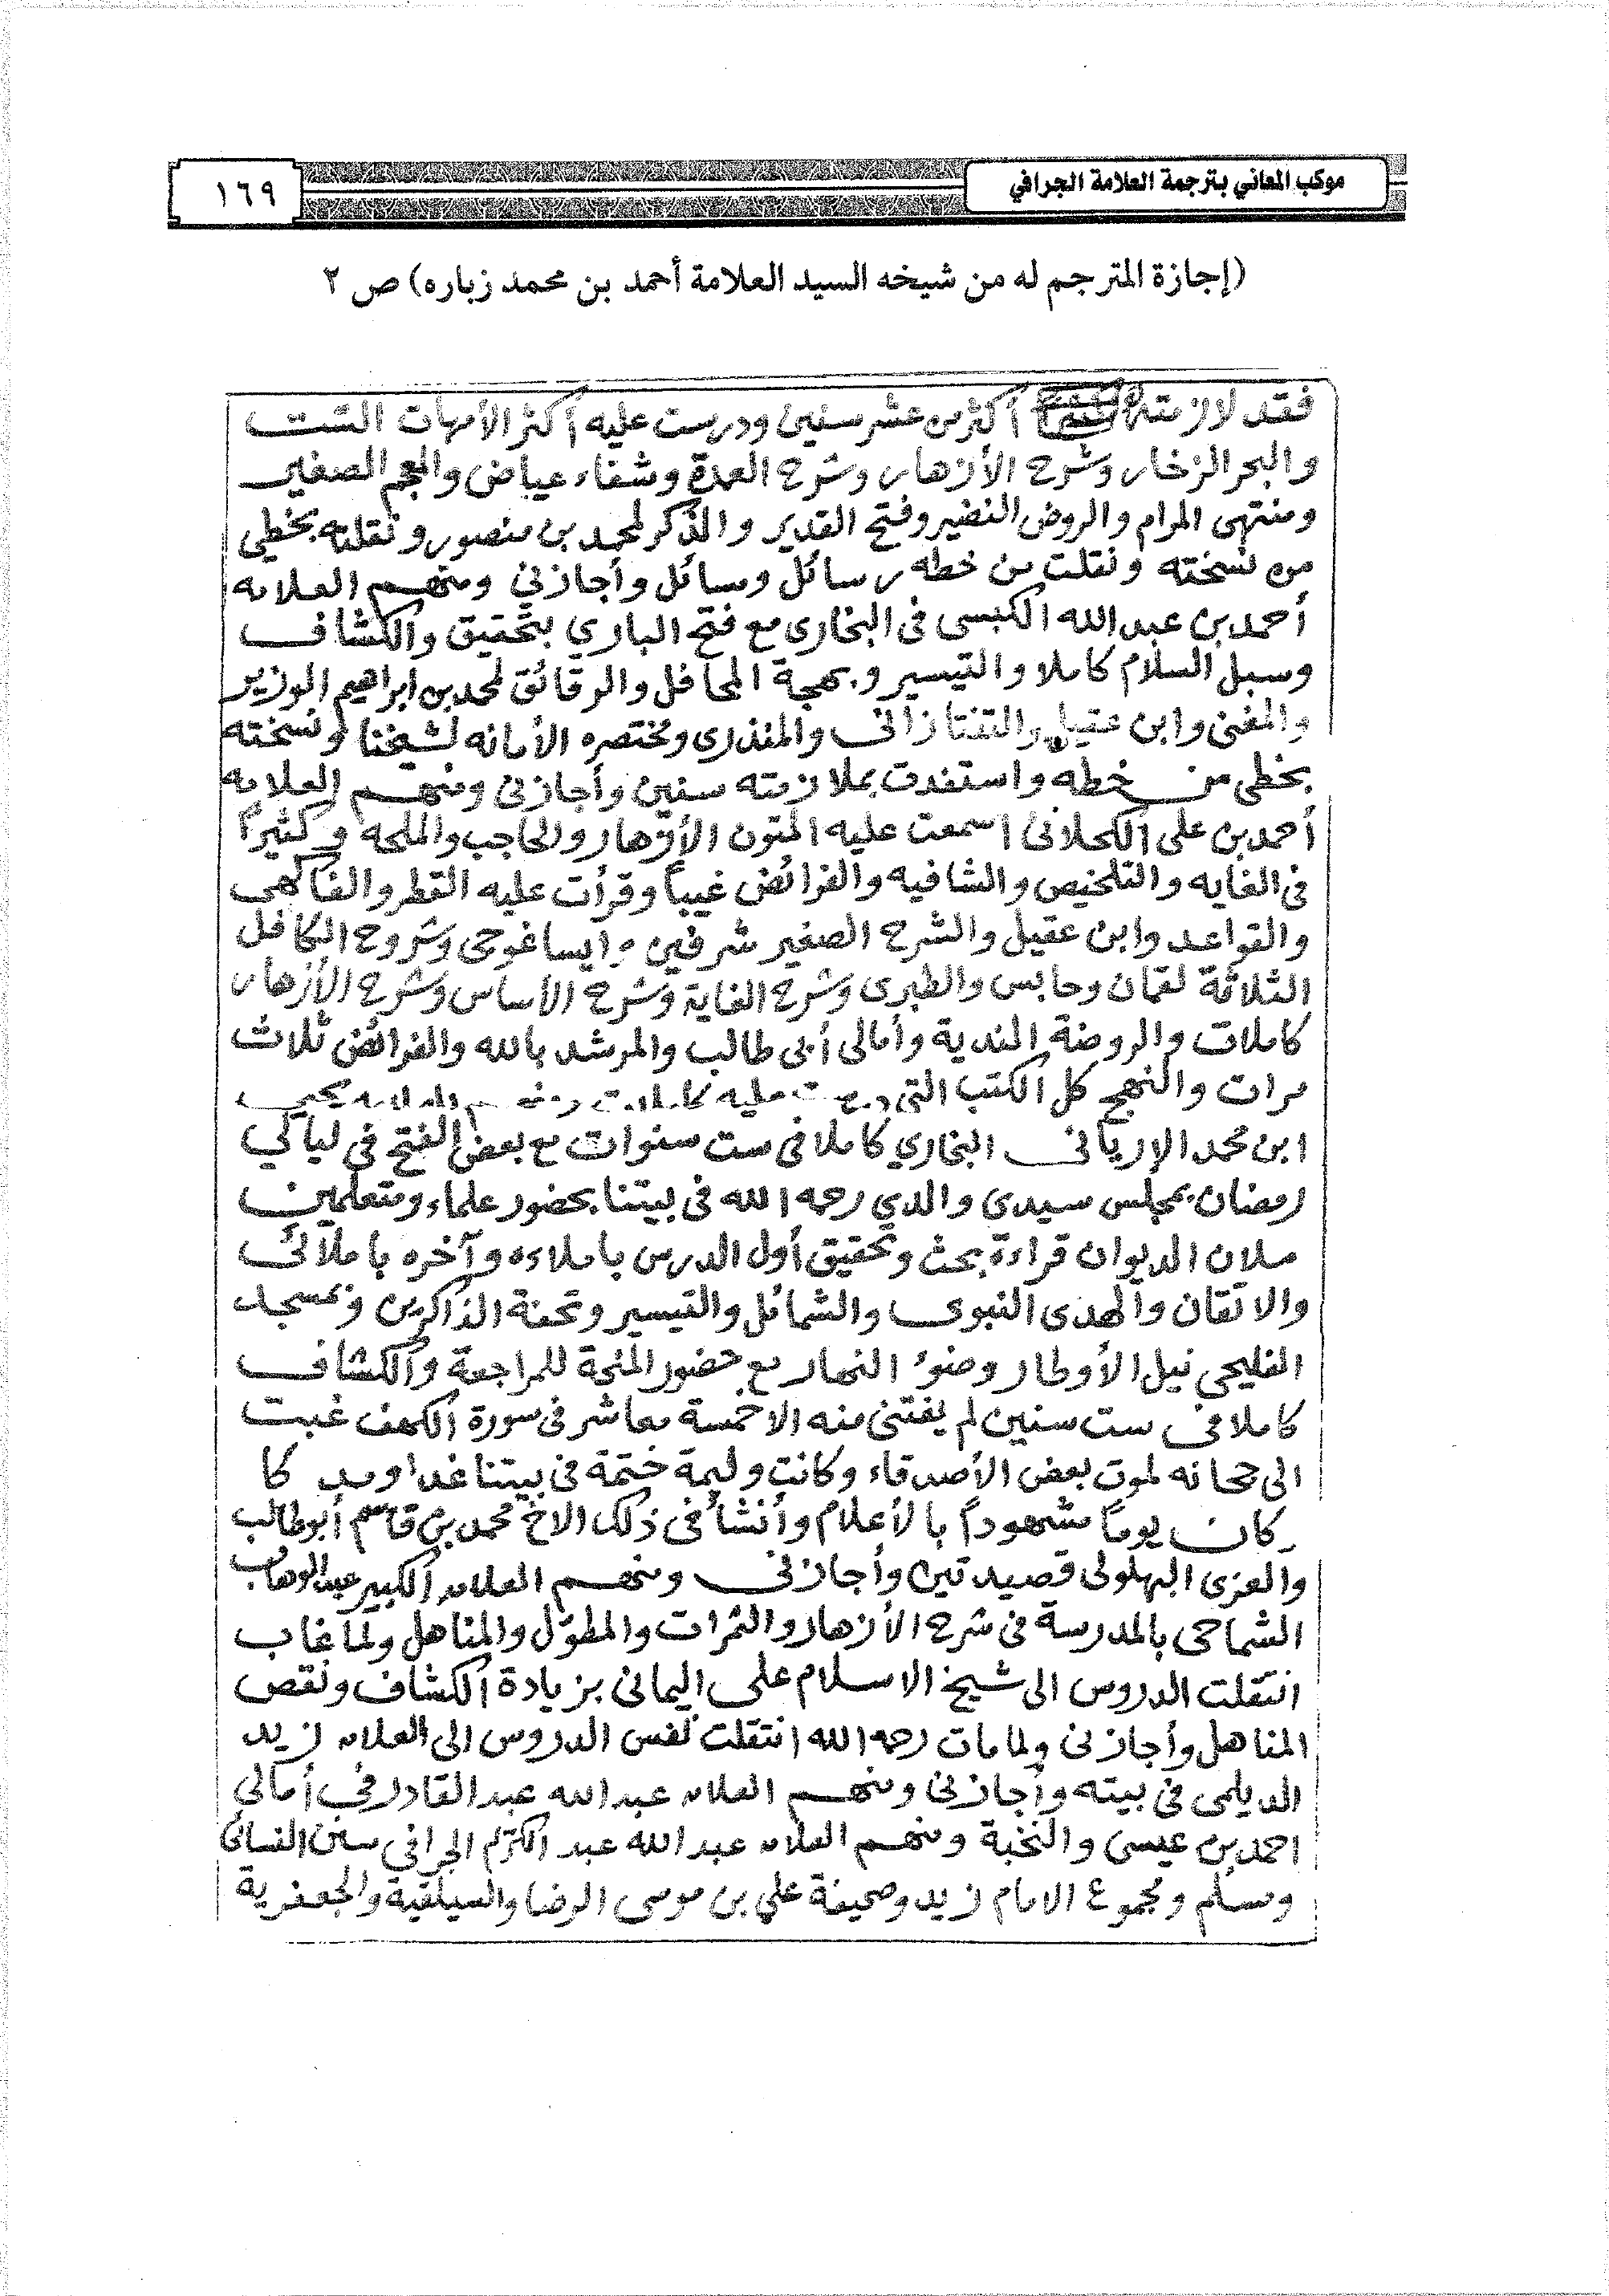 موكب المعاني بترجمة العلامة الجرافي
١٦٩
(إجازة المترجم له من شيخه السيد العلامة أحمد بن محمد زباره) ص ٢
فقد لازمته أكثر من عشر سنين ودرست عليه أكثر الأمهات الست
والبحر الزخار وشرح الأزهار وشرح العمدة وشفاء عياض والمعجم الصغير
ومنتهى المرام والروض النضير وفتح القدير والذكر لمحمد بن منصور ونقلته بخطي
من نسخته ونقلت من خطه رسائل ومسائل وأجازني ومنهم العلامه
أحمد بن عبد الله الكبسى فى البخارى مع فتح الباري بتحقيق والكشاف
وسبل السلام كاملا والتيسير وبهجة المحافل والرقائق لمحمد بن ابراهيم الوزير
والمغنى وابن عقيل والتفتازانى والمنذرى ومختصره الأمانه لشيخنا ونسخته
بخطى من خطه واستفدت بملازمته سنين وأجازنى ومنهم العلامه
أحمد بن على الكحلانى اسمعت عليه المتون الأزهار والحاجب والملحه وكثيراً
فى الغايه والتلخيص والشافيه والفرائض غيباً وقرأت عليه القطر والفاكهى
والقواعد وابن عقيل والشرح الصغير شرفين وايساغوجى وشروح الكافل
الثلاثة لقمان وحابس والطبرى وشرح الغاية وشرح الأساس وشرح الأزهار
كاملات والروضة الندية وأمالى أبى طالب والمرشد بالله والفرائض ثلاث
مرات والنهج كل الكتب التى عليه كاملات ومنهم العلامه يحيى
ابن محمد الإريانى البخاري كاملا فى ست سنوات مع بعض الفتح فى ليالي
رمضان بمجلس سيدى والدي رحمه الله فى بيتنا بحضور علماء ومتعلمين
ملان الديوان قراءة بحث وتحقيق أول الدرس باملاءه وآخره باملائى
والاتقان والهدى النبوى والشمائل والتيسير وتحفة الذاكرين وبمسجد
الفليحي نيل الأوطار وضوء النهار مع حضور المنحة للمراجعة والكشاف
كاملا فى ست سنين لم يفتنى منه الا خمسة معاشر فى سورة الكهف غبت
الى حجانه لموت بعض الأصدقاء وكانت وليمة ختمة فى بيتنا غداوىد كا
كان يوماً مشهوداً بالأعلام وأنشأ فى ذلك الاخ محمد بن قاسم أبو طالب
والعزى البهلولى قصيدتين وأجازنى ومنهم العلامه الكبير عبد الوهاب
الشماحى بالمدرسة فى شرح الأزهار والثمرات والمطوّل والمناهل ولما غاب
انتقلت الدروس الى شيخ الاسلام على اليمانى بزيادة الكشاف ونقص
المناهل وأجازنى ولما مات رحمه الله انتقلت نفس الدروس الى العلامه زيد
الديلمى فى بيته وأجازنى ومنهم العلامه عبد الله عبد القادر فى أمالي
احمد بن عيسى والنخبة ومنهم العلامه عبد الله عبد الكريم الجرافي سنن النسائى
ومسلم ومجموع الامام زيد وصحيفة علي بن موسى الرضا والسيلقية والجعفرية